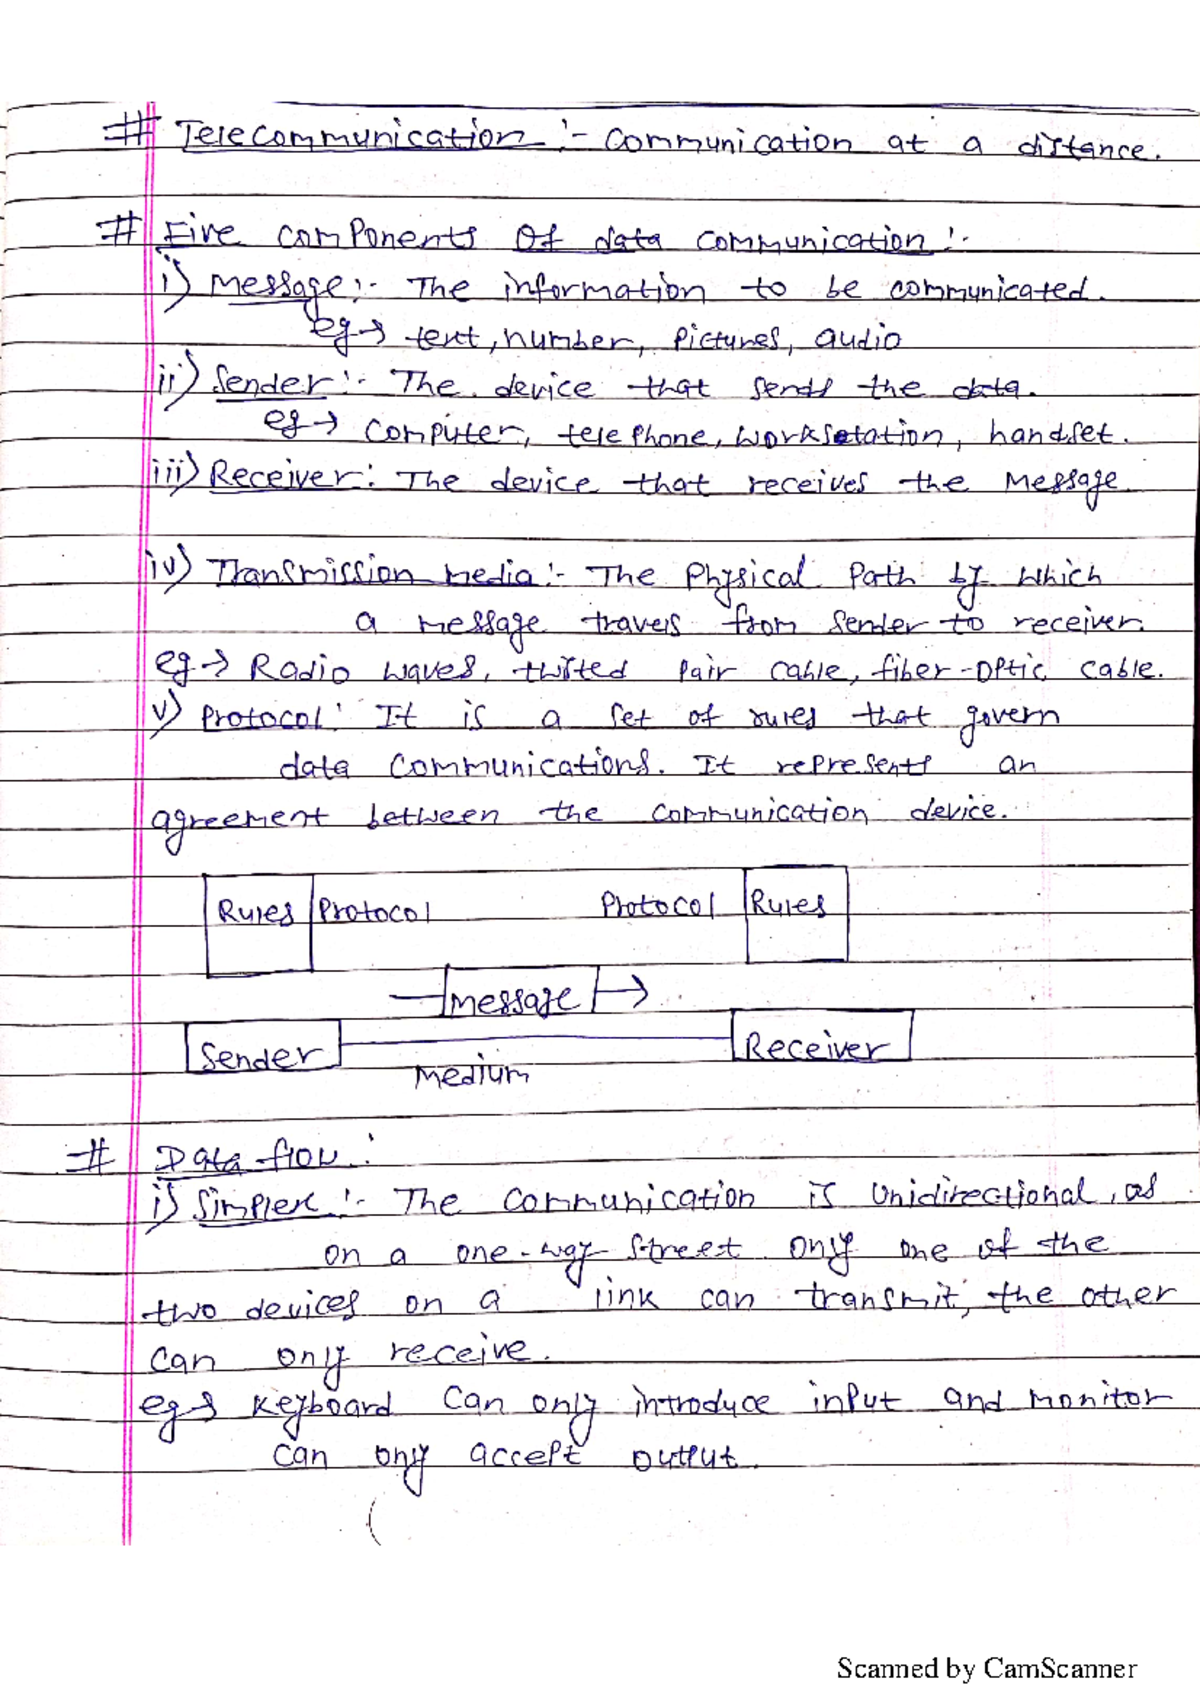 # Telecommunication :- Communication at a distance.
# Five components of data communication :-
i) Message :- The information to be communicated.
eg→ text, number, pictures, audio
ii) Sender :- The device that sends the data.
eg→ Computer, telephone, workstation, handset.
iii) Receiver : The device that receives the Message
iv) Transmission media :- The Physical Path by which
a message travels from sender to receiver.
eg→ Radio waves, twisted pair cable, fiber-optic cable.
v) Protocol : It is a set of rules that govern
data communications. It represents an
agreement between the communication device.
Rules Protocol Protocol Rules
Message
Sender Receiver
Medium
# Data flow :
i) Simplex :- The communication is unidirectional, as
on a one-way street only one of the
two devices on a link can transmit, the other
can only receive.
eg→ Keyboard can only introduce input and monitor
can only accept output.
(
Scanned by CamScanner